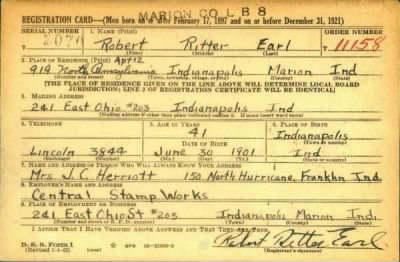 MARION CO L B 8
REGISTRATION CARD—(Men born on or after February 17, 1897 and on or before December 31, 1921)
SERIAL NUMBER 1. NAME (Print) ORDER NUMBER
2070 Robert Ritter Earl 11158
(First) (Middle) (Last)
2. PLACE OF RESIDENCE (Print) APT 12
919 North Pennsylvania Indianapolis Marion Ind
(Number and street) (Town, township, village, or city) (County) (State)
[THE PLACE OF RESIDENCE GIVEN ON THE LINE ABOVE WILL DETERMINE LOCAL BOARD
JURISDICTION; LINE 2 OF REGISTRATION CERTIFICATE WILL BE IDENTICAL]
3. MAILING ADDRESS
241 East Ohio #203 Indianapolis Ind
[Mailing address if other than place indicated on line 2. If same insert word same]
4. TELEPHONE 5. AGE IN YEARS 6. PLACE OF BIRTH
41 Indianapolis
DATE OF BIRTH (Town or county)
Lincoln 3844 June 30 1901 Ind
(Exchange) (Number) (Mo.) (Day) (Yr.) (State or country)
7. NAME AND ADDRESS OF PERSON WHO WILL ALWAYS KNOW YOUR ADDRESS
Mrs J. C. Herriott 150 North Hurricane, Franklin Ind.
8. EMPLOYER'S NAME AND ADDRESS
Central Stamp Works
9. PLACE OF EMPLOYMENT OR BUSINESS
241 East Ohio St #203 Indianapolis Marion Ind.
(Number and street or R. F. D. number) (Town) (County) (State)
I AFFIRM THAT I HAVE VERIFIED ABOVE ANSWERS AND THAT THEY ARE TRUE.
D. S. S. Form 1
(Revised 1-1-42) (over) Robert Ritter Earl